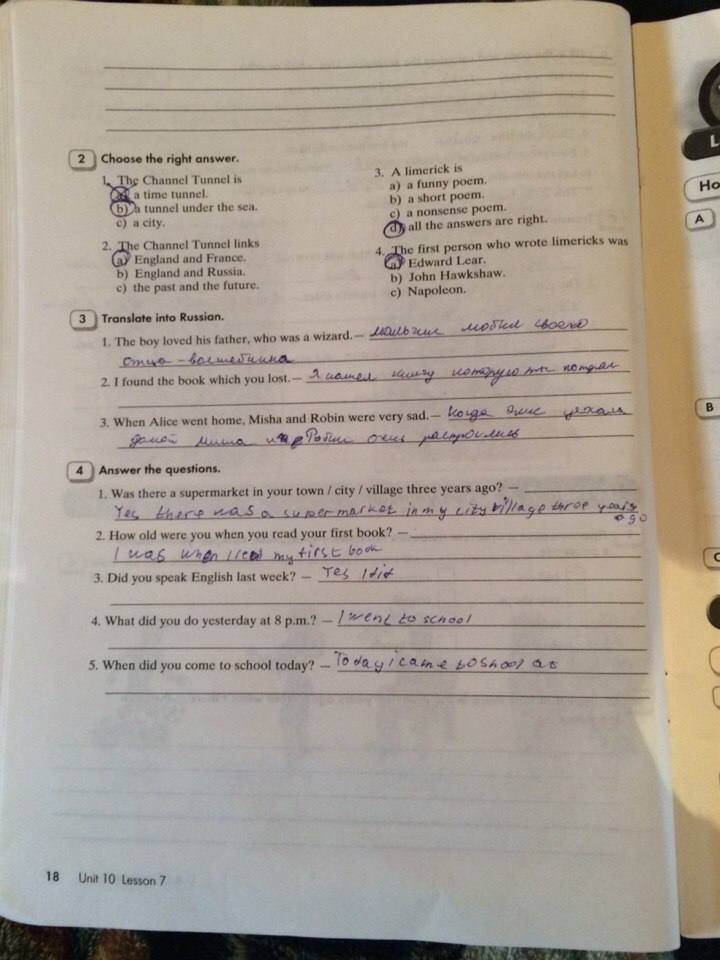 2 Choose the right answer.
1. The Channel Tunnel is
a) a time tunnel.
b) a tunnel under the sea.
c) a city.
2. The Channel Tunnel links
a) England and France.
b) England and Russia.
c) the past and the future.
3. A limerick is
a) a funny poem.
b) a short poem.
c) a nonsense poem.
d) all the answers are right.
4. The first person who wrote limericks was
a) Edward Lear.
b) John Hawkshaw.
c) Napoleon.
3 Translate into Russian.
1. The boy loved his father, who was a wizard. — мальчик любил своего
отца - волшебника
2. I found the book which you lost. — Я нашел книгу которую ты потерял
3. When Alice went home, Misha and Robin were very sad. — Когда Элис уехала
домой Миша и Робин очень расстроились
4 Answer the questions.
1. Was there a supermarket in your town / city / village three years ago? —
Yes there was a supermarket in my city village three years
ago
2. How old were you when you read your first book? —
I was when I read my first book
3. Did you speak English last week? — Yes I did
4. What did you do yesterday at 8 p.m.? — I went to school
5. When did you come to school today? — Today i came to shool at
18 Unit 10 Lesson 7
L
Ho
A
B